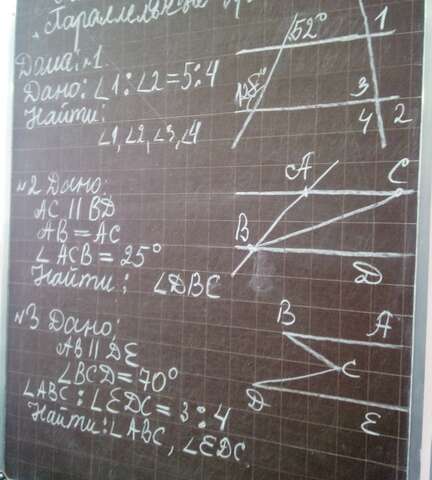 Параллельн
Дома: №1
Дано: ∠1:∠2=5:4
Найти:
∠1, ∠2, ∠3, ∠4
52°
1
128°
3
4 2
№2 Дано:
AC || BD
AB = AC
∠ACB = 25°
Найти: ∠DBC
A
C
B
D
№3 Дано:
AB || DE
∠BCD = 70°
∠ABC : ∠EDC = 3:4
Найти: ∠ABC, ∠EDC
B
A
C
D
E